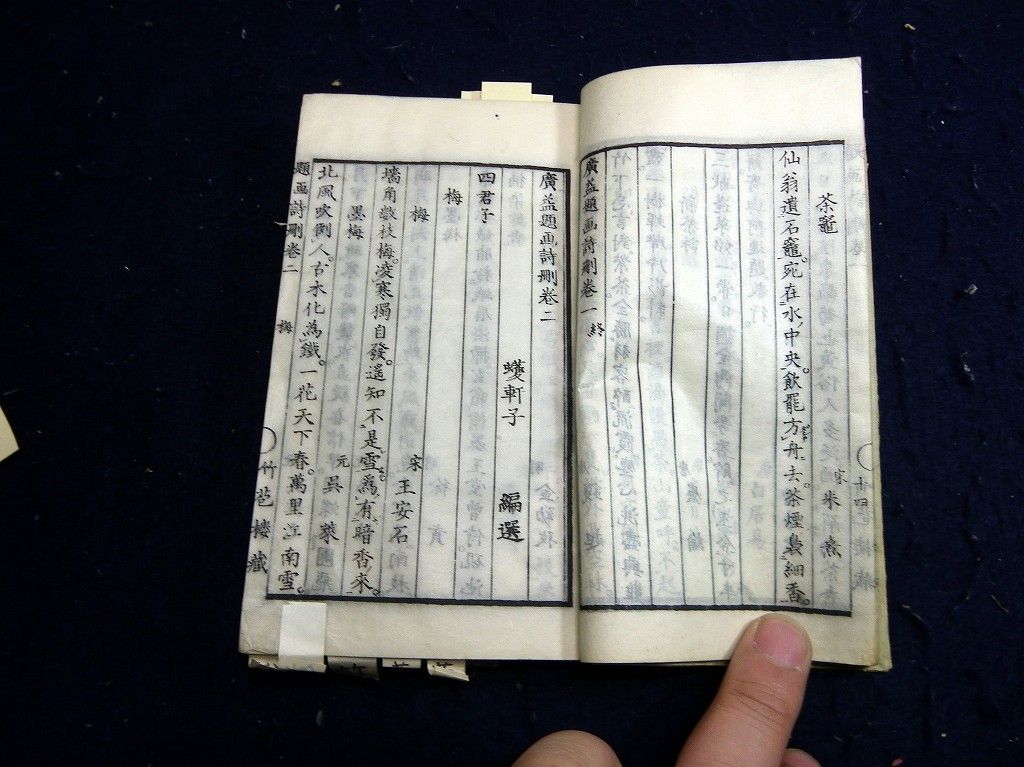 茶竈
宋 米 熹
仙翁遺石竈。宛在水中央。飲罷方舟去。茶煙裊細香。
廣益題画詩刪卷一 終
十四
廣益題画詩刪卷二
蠖軒子 編選
四君子
梅
梅 宋 王安石
墻角數枝梅。凌寒獨自發。遥知不是雪。為有暗香來。
墨梅 元 吳 萊
北風吹倒人。古木化為鐵。一花天下春。萬里江南雪。
題画詩刪卷二 梅 竹苞楼藏